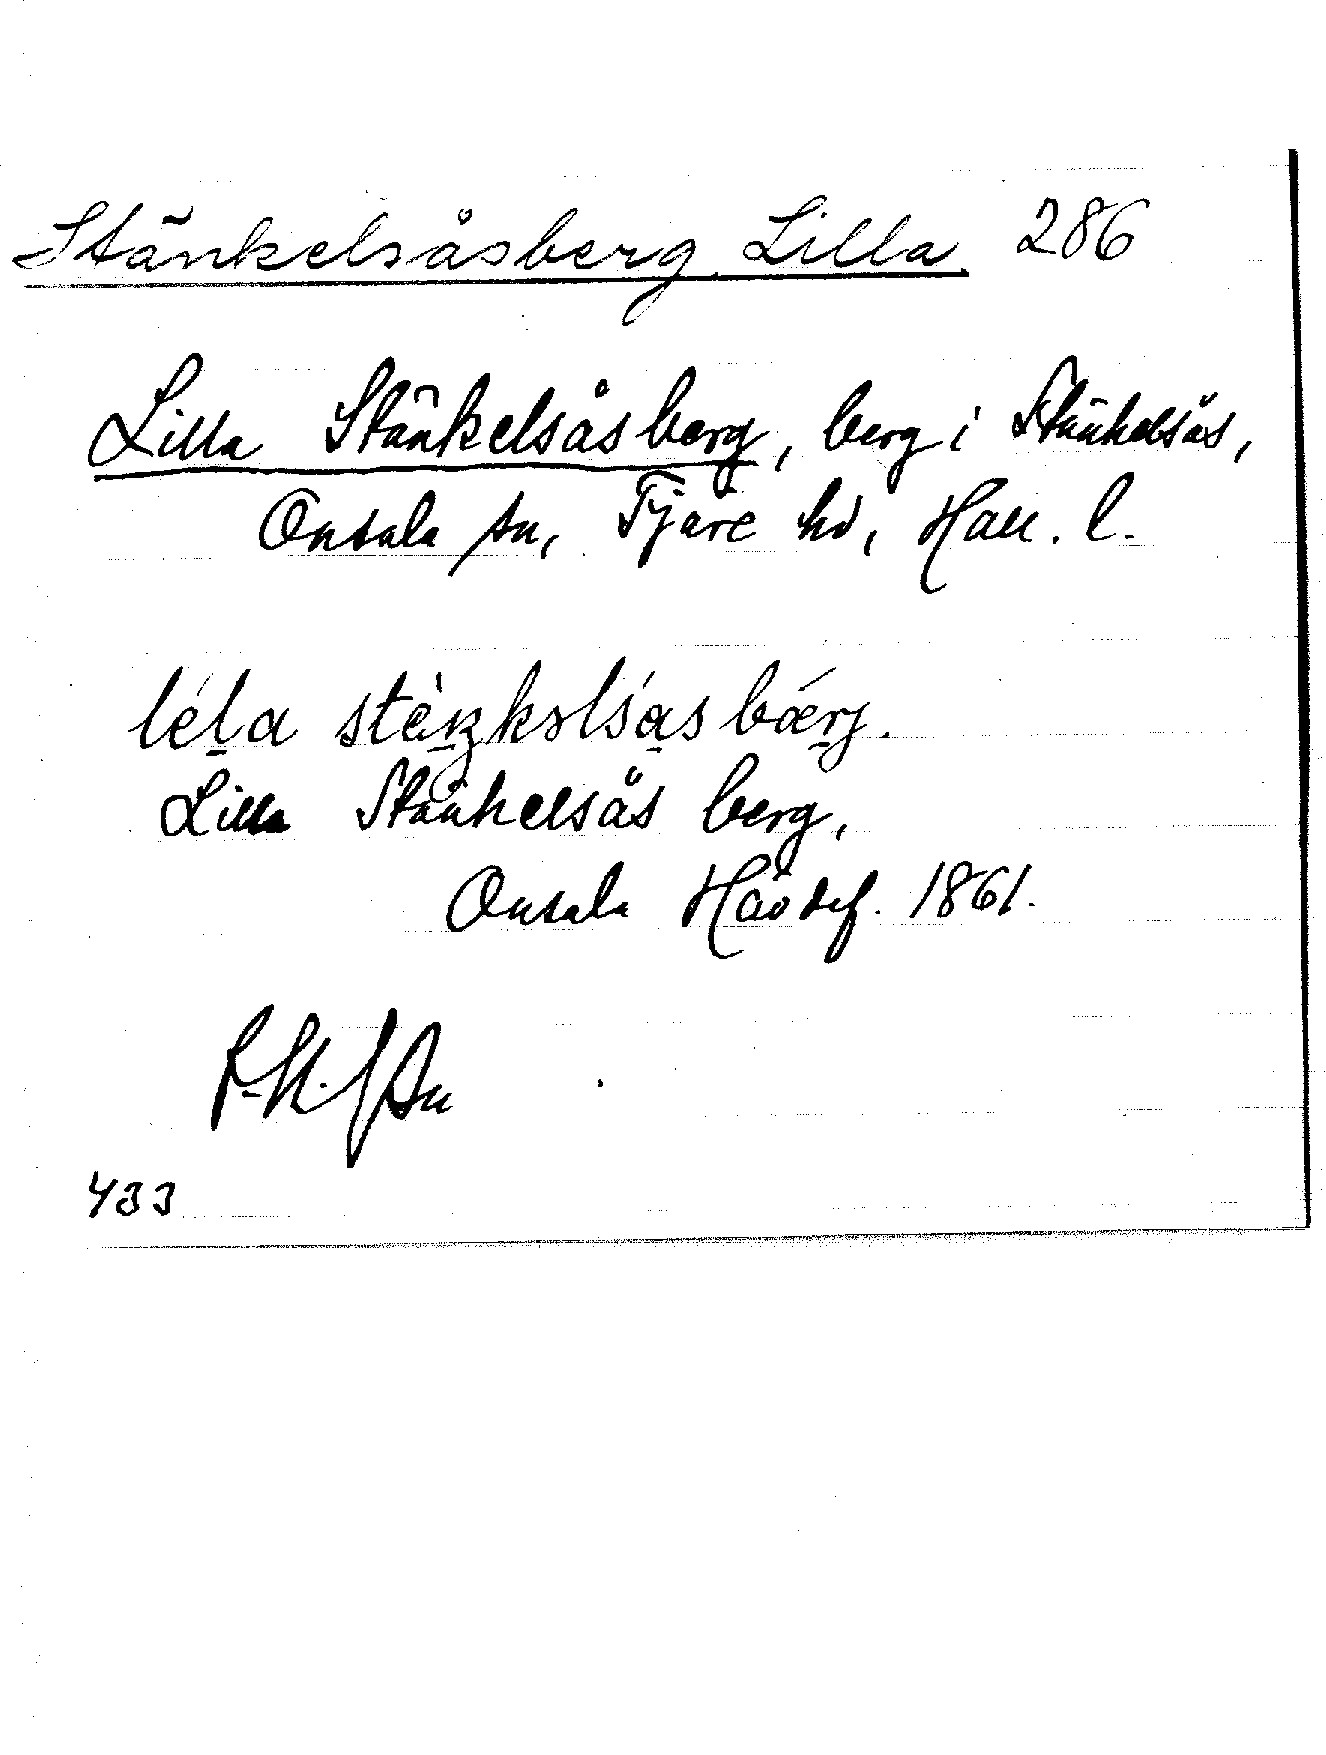 Stänkelsåsberg, Lilla. 286
Lilla Stänkelsåsberg, berg i Stänkelsås,
Onsala sn, Fjäre hd, Hall. l.
léla stèŋkəlsas bǽrj.
Lilla Stänkelsås berg,
Onsala Hävdef. 1861.
433